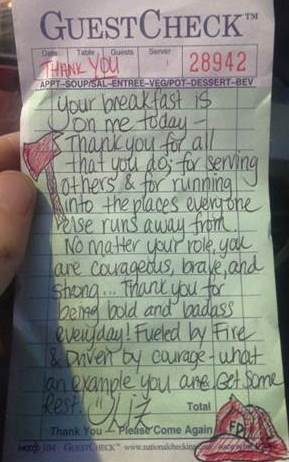 GUESTCHECK™
Date Table Guests Server
THANK YOU 28942
APPT-SOUP/SAL-ENTREE-VEG/POT-DESSERT-BEV
Your breakfast is
on me today -
Thank you for all
that you do; for serving
others & for running
into the places everyone
else runs away from.
No matter your role, you
are courageous, brave, and
strong... Thank you for
being bold and badass
everyday! Fueled by Fire
& Driven by courage - what
an example you are. Get Some
Rest. Liz
Total
FD
Thank You - Please Come Again
GUESTCHECK™